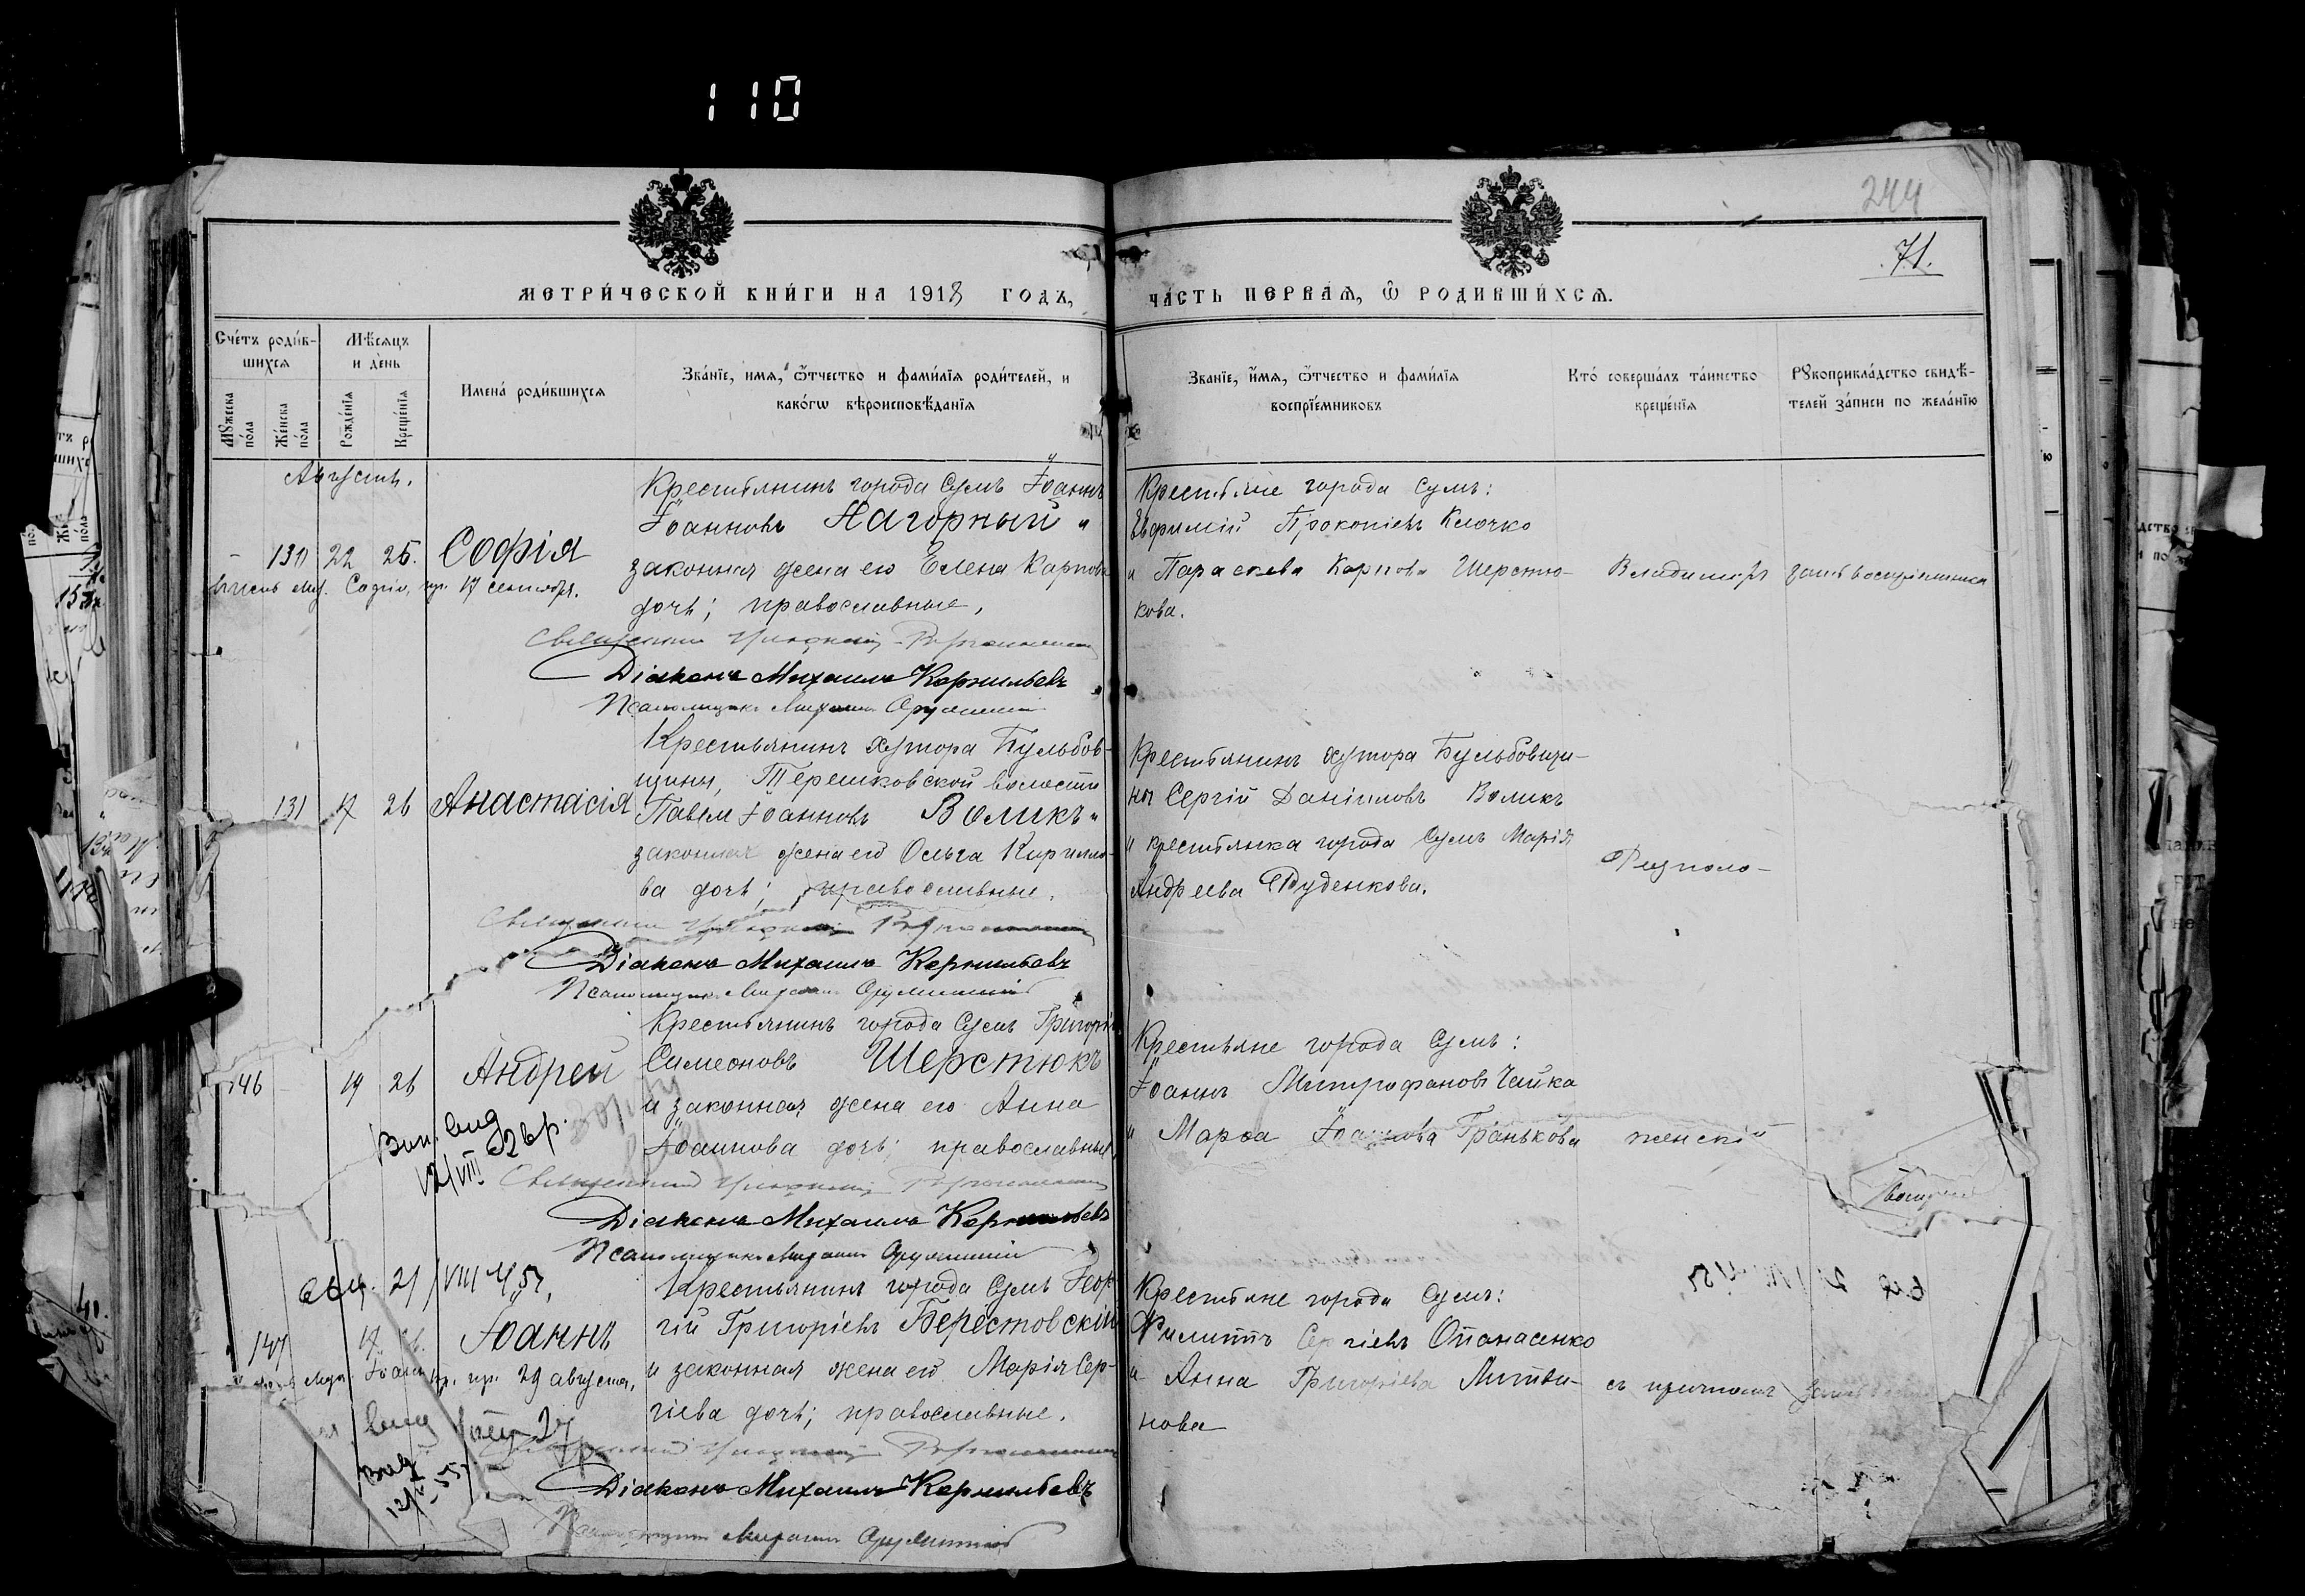 110
244
71.
МЕТРИ́ЧЕСКОЙ КНИ́ГИ НА 1918 ГОДЪ,
ЧА́СТЬ ПЕРВА́Ѧ, Ѿ РОДИВШИ́ХСѦ.
Сче́тъ роди́в-
шихсѧ
Мꙋ́жеска по́ла
Же́нска по́ла
Мѣ́сѧцъ
и де́нь
Рожде́нїѧ
Креще́нїѧ
Имена́ роди́вшихсѧ
Зва́нїе, имѧ, ѻ́тчество и фами́лїѧ роди́телей, и
како́гѡ вѣроисповѣ́данїѧ
Зва́нїе, и́мѧ, ѻ́тчество и фами́лїѧ
воспрїе́мниковъ
Кто́ соверша́лъ та́инство
креще́нїѧ
Рꙋкоприкла́дство свидѣ́-
телей за́писи по жела́нїю
Августъ.
130 22 25. Софія
Крестьянинъ города Сумъ Іоаннъ
Іоанновъ Нагорный и
законная жена его Елена Карпова
дочь; православные,
Софіи, 17 сентября.
Діаконъ Михаилъ Корнильевъ
Псаломщикъ Михаилъ
Крестьяне города Сумъ:
Евфимій Прокопіевъ Клочко
и Параскева Карпова Шерстю-
кова.
Владимиръ
131 17 26 Анастасія
Крестьянинъ хутора Бульбов-
щины, Терешковской волости
Павелъ Іоанновъ Воликъ и
законная жена его Ольга Кирилло-
ва дочь; православные.
Діаконъ Михаилъ Корнильевъ
Псаломщикъ Михаилъ
Крестьянинъ хутора Бульбовщи-
ны Сергій Даніиловъ Воликъ
и крестьянка города Сумъ Марія
Андреева Руденкова.
146 19 26 Андрей
Крестьянинъ города Сумъ Григорій
Симеоновъ Шерстюкъ
и законная жена его Анна
Іоаннова дочь; православные
Діаконъ Михаилъ Корнильевъ
Псаломщикъ Михаилъ
Крестьяне города Сумъ:
Іоаннъ Митрофановъ Чайка
и Марѳа Іоаннова Гранькова
21/VIII 457.
147 17 26. Іоаннъ
29 августа,
Крестьянинъ города Сумъ Геор-
гій Григоріевъ Берестовскій
и законная жена его Марія Сер-
гіева дочь; православные.
Діаконъ Михаилъ Корнильевъ
Псаломщикъ Михаилъ
Крестьяне города Сумъ:
Филиппъ Сергіевъ Опанасенко
и Анна Григоріева Литви-
нова
съ причтомъ